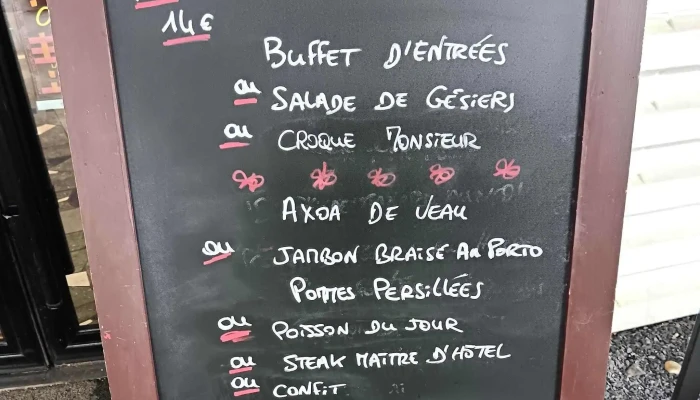 14€
BUFFET D'ENTRÉES
ou SALADE DE GÉSIERS
ou CROQUE MONSIEUR
AXOA DE VEAU
ou JAMBON BRAISÉ AU PORTO
POMMES PERSILLÉES
ou POISSON DU JOUR
ou STEAK MAITRE D'HÔTEL
ou CONFIT